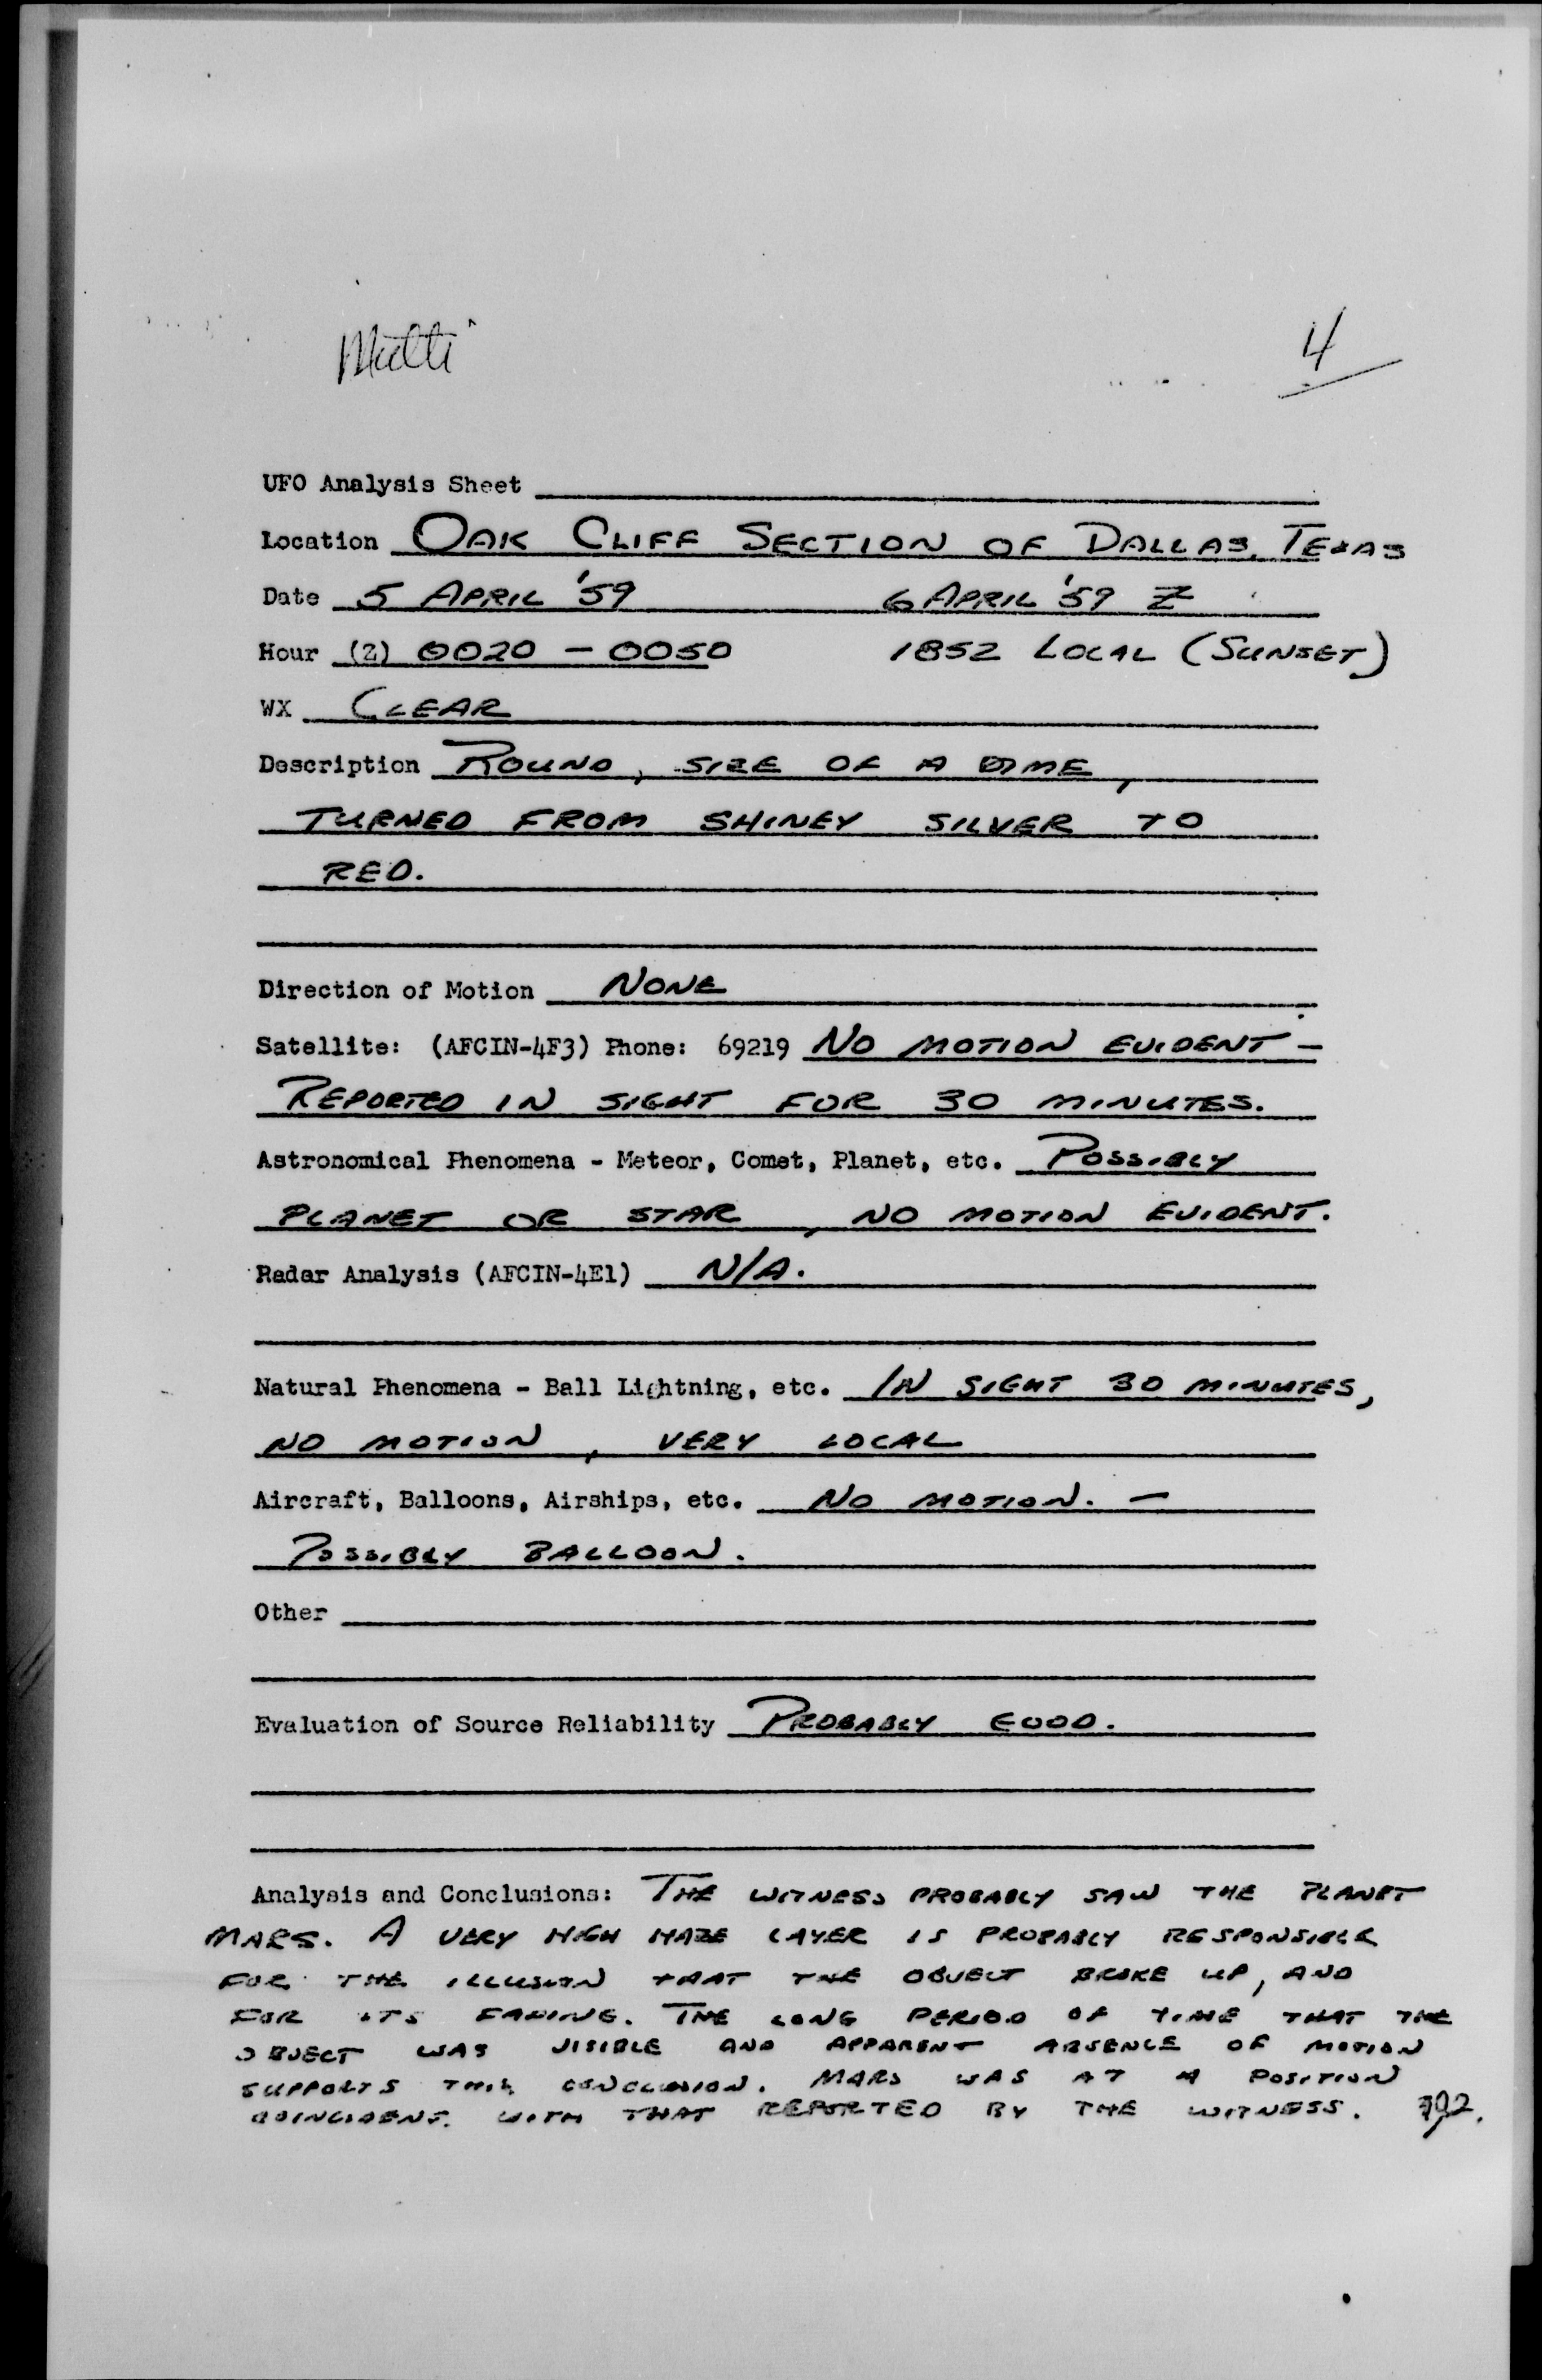 Multi
4
UFO Analysis Sheet
Location OAK CLIFF SECTION OF DALLAS, TEXAS
Date 5 APRIL '59 6 APRIL '59 Z
Hour (Z) 0020 - 0050 1852 LOCAL (SUNSET)
WX CLEAR
Description ROUND, SIZE OF A DIME,
TURNED FROM SHINEY SILVER TO
RED.
Direction of Motion NONE
Satellite: (AFCIN-4F3) Phone: 69219 NO MOTION EVIDENT -
REPORTED IN SIGHT FOR 30 MINUTES.
Astronomical Phenomena - Meteor, Comet, Planet, etc. POSSIBLY
PLANET OR STAR, NO MOTION EVIDENT.
Radar Analysis (AFCIN-4E1) N/A.
Natural Phenomena - Ball Lightning, etc. IN SIGHT 30 MINUTES,
NO MOTION, VERY LOCAL
Aircraft, Balloons, Airships, etc. NO MOTION. -
POSSIBLY BALLOON.
Other
Evaluation of Source Reliability PROBABLY GOOD.
Analysis and Conclusions: THE WITNESS PROBABLY SAW THE PLANET
MARS. A VERY HIGH HAZE LAYER IS PROBABLY RESPONSIBLE
FOR THE ILLUSION THAT THE OBJECT BROKE UP, AND
FOR ITS FADING. THE LONG PERIOD OF TIME THAT THE
OBJECT WAS VISIBLE AND APPARENT ABSENCE OF MOTION
SUPPORTS THIS CONCLUSION. MARS WAS AT A POSITION
COINCIDENT WITH THAT REPORTED BY THE WITNESS.